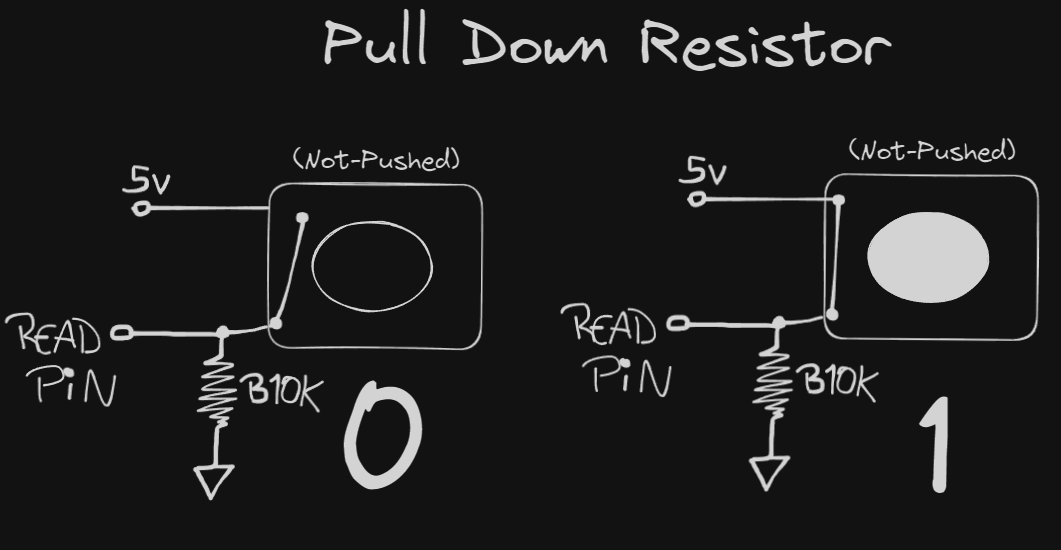 Pull Down Resistor
(Not-Pushed)
5v
READ
PiN
B10K
0
(Not-Pushed)
5v
READ
PiN
B10K
1